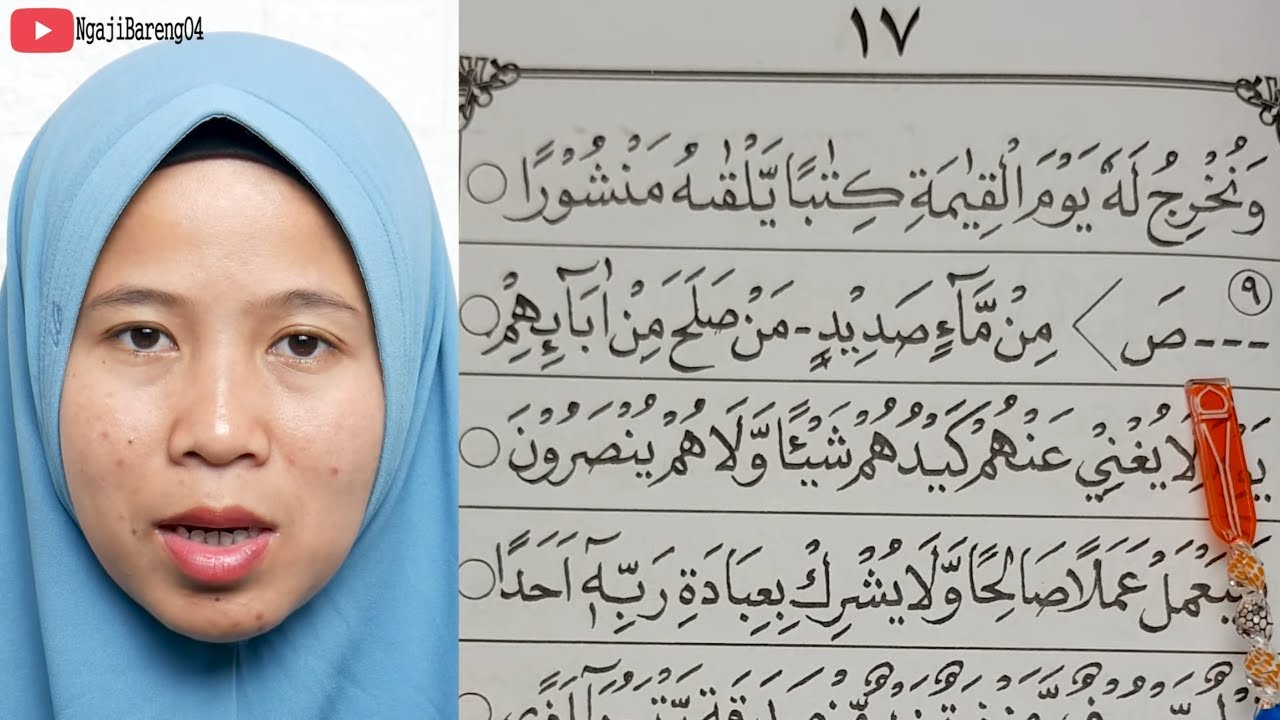 NgajiBareng04
١٧
وَنُخْرِجُ لَهٗ يَوْمَ الْقِيٰمَةِ كِتٰبًا يَّلْقٰىهُ مَنْشُوْرًا
٩
--- صَ > مِنْ مَّآءٍ صَدِيْدٍ - مَنْ صَلَحَ مِنْ اٰبَآىِٕهِمْ
لَا يُغْنِيْ عَنْهُمْ كَيْدُهُمْ شَيْـًٔا وَّلَا هُمْ يُنْصَرُوْنَ
عَمَلًا صَالِحًا وَّلَا يُشْرِكْ بِعِبَادَةِ رَبِّهٖٓ اَحَدًا